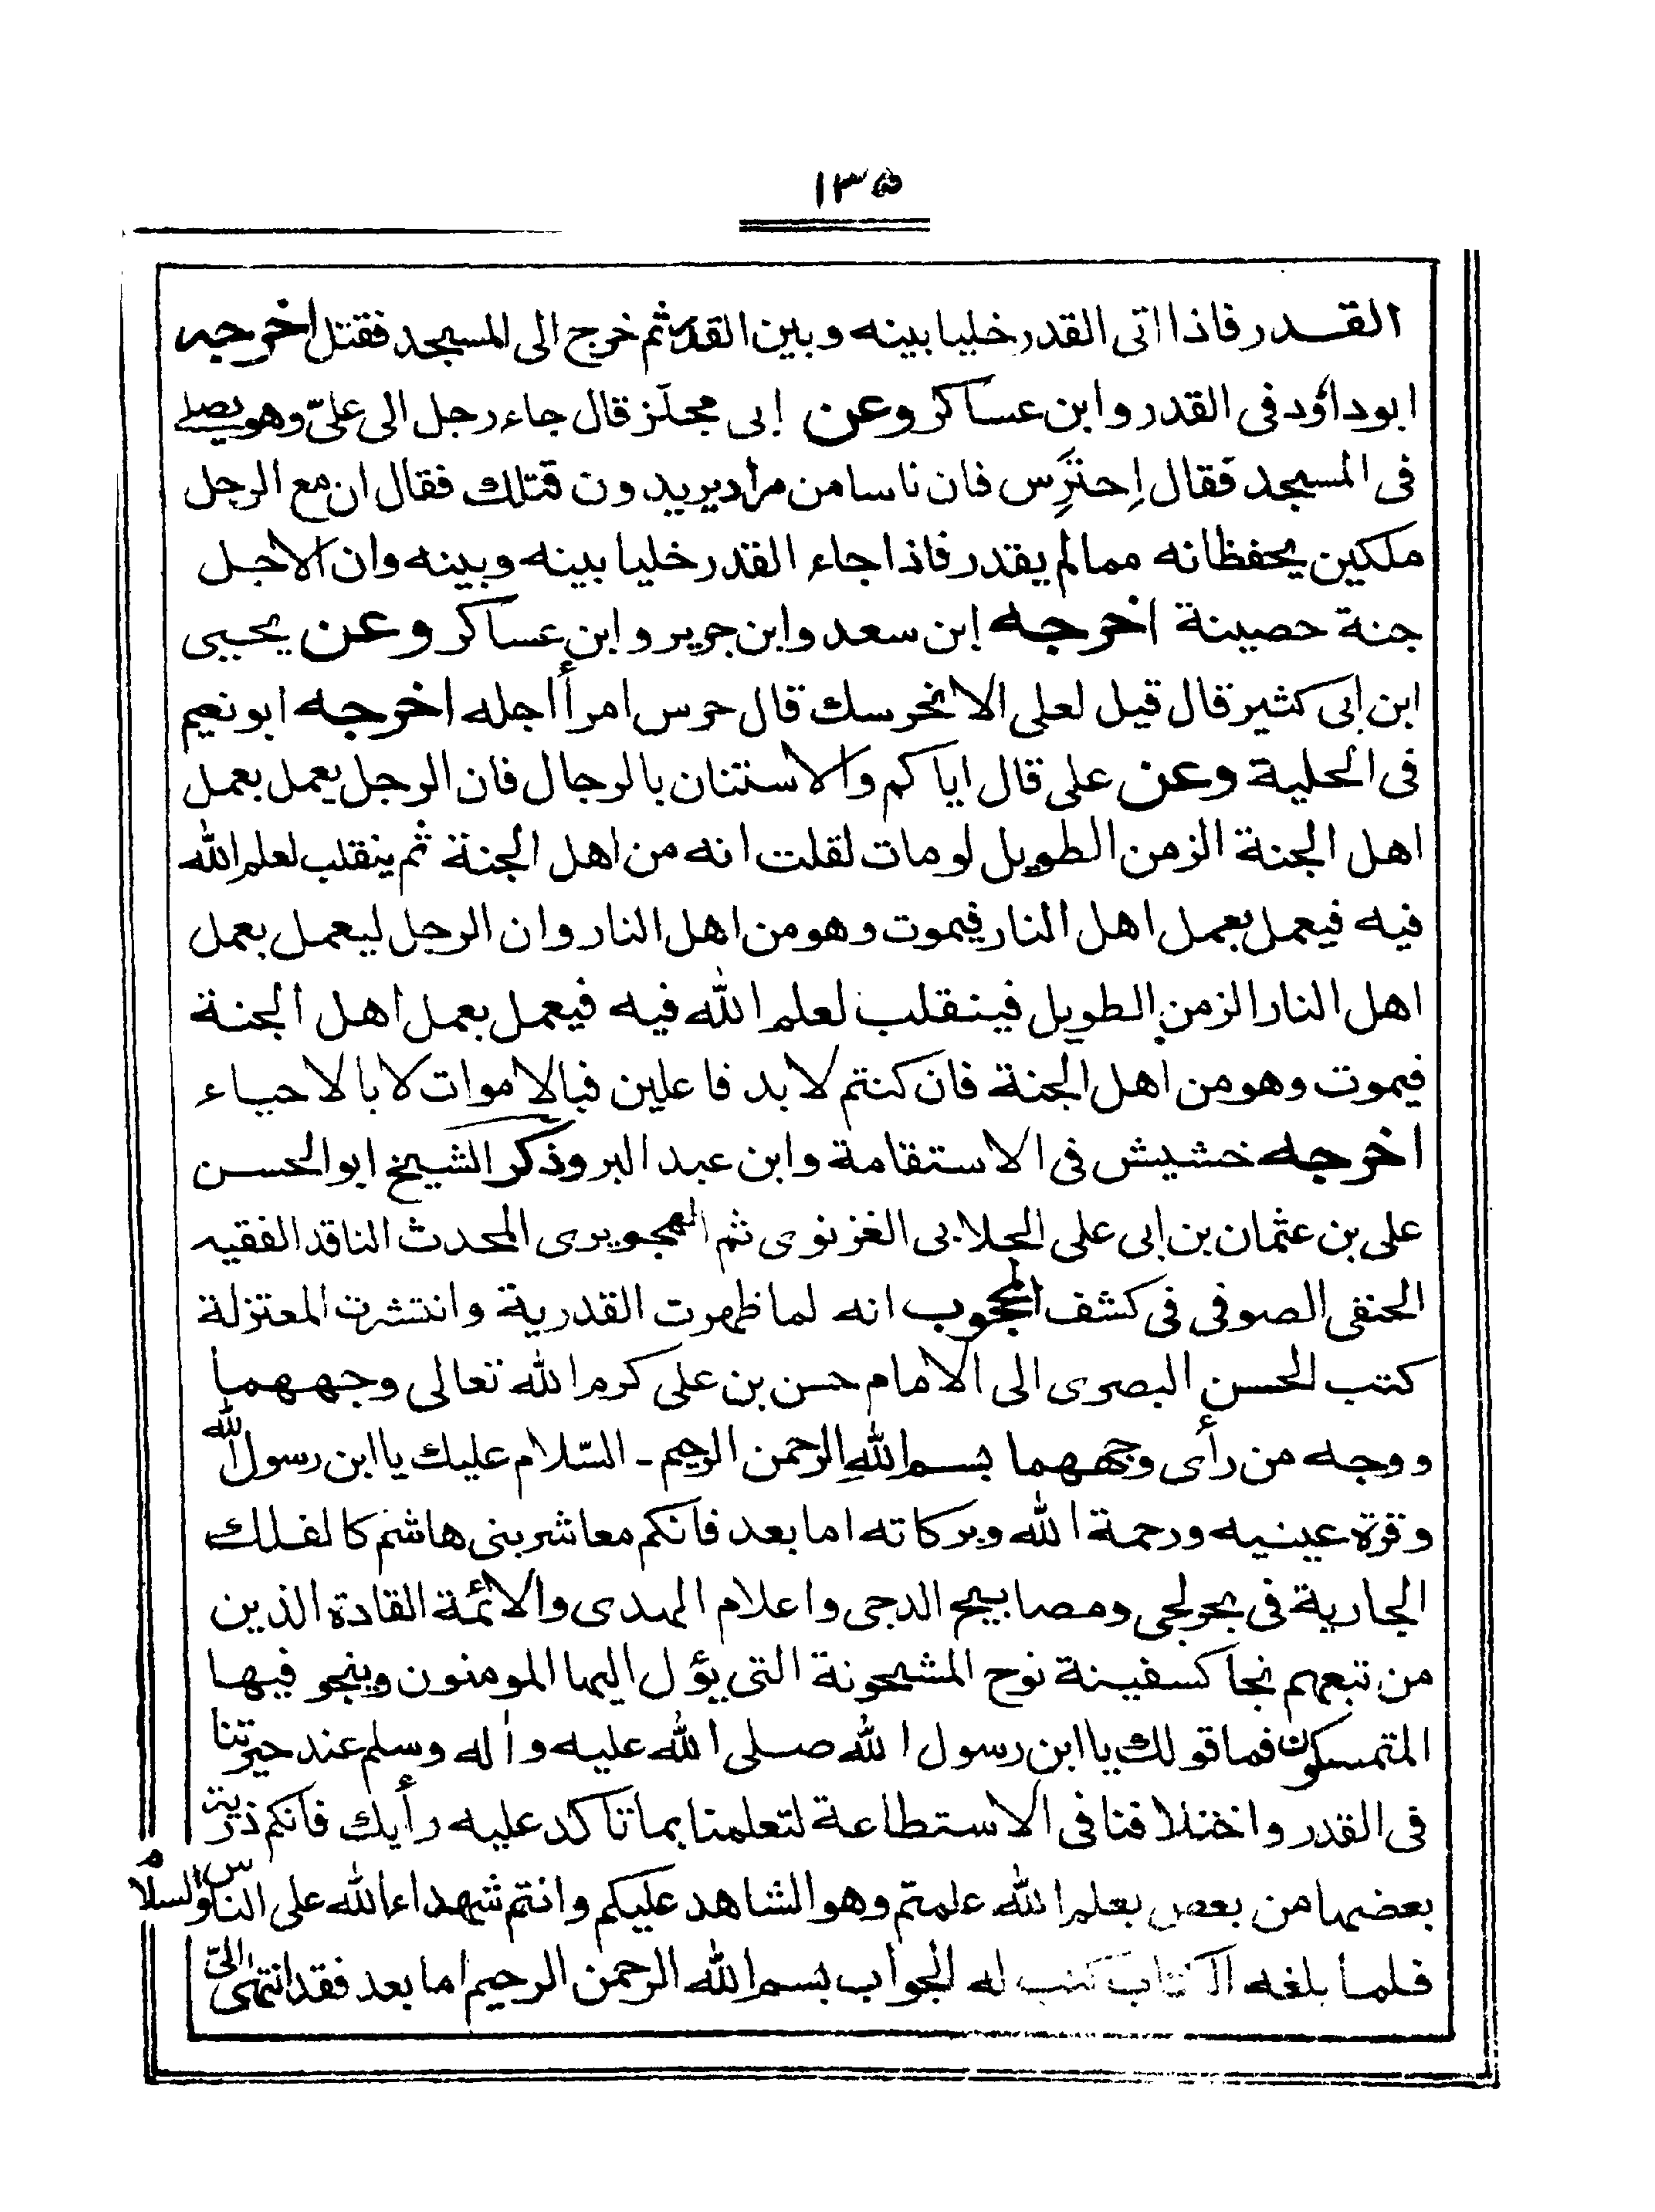 ١٣٥
القدر فاذا اتى القدر خليا بينه وبين القدر ثم خرج الى المسجد فقتل اخرجه
ابوداؤد فى القدر وابن عساكر وعن ابى مجلز قال جاء رجل الى علىّ وهو يصلے
فى المسجد فقال اِحترِس فان ناسا من مراد يريدون قتلك فقال ان مع الرجل
ملكين يحفظانه ممالم يقدر فاذا جاء القدر خليا بينه وبينه وان الاجل
جنة حصينة اخرجه ابن سعد وابن جرير وابن عساكر وعن يحيى
ابن ابى كثير قال قيل لعلى الا نحرسك قال حرس امرأ اجله اخرجه ابو نعيم
فى الحلية وعن على قال اياكم والاستنان بالرجال فان الرجل يعمل بعمل
اهل الجنة الزمن الطويل لو مات لقلت انه من اهل الجنة ثم ينقلب لعلم الله
فيه فيعمل بعمل اهل النار فيموت وهو من اهل النار وان الرجل ليعمل بعمل
اهل النار الزمن الطويل فينقلب لعلم الله فيه فيعمل بعمل اهل الجنة
فيموت وهو من اهل الجنة فان كنتم لا بد فاعلين فبالاموات لا بالاحياء
اخرجه خشيش فى الاستقامة وابن عبد البر وذكر الشيخ ابو الحسن
على بن عثمان بن ابى على الجلابى الغزنوى ثم الهجويرى المحدث الناقد الفقيه
الحنفى الصوفى فى كشف المحجوب انه لما ظهرت القدرية وانتشرت المعتزلة
كتب الحسن البصرى الى الامام حسن بن على كرم الله تعالى وجههما
ووجه من رأى وجههما بسم اللهِ الرحمن الرحيم ـ السّلام عليك يا ابن رسول الله
وقرة عينيه ورحمة الله وبركاته اما بعد فانكم معاشر بنى هاشم كالفلك
الجارية فى بحر لجى ومصابيح الدجى واعلام الهدى والائمة القادة الذين
من تبعهم نجا كسفينة نوح المشحونة التى يؤل اليها المومنون وينجو فيها
المتمسكون فما قولك يا ابن رسول الله صلى الله عليه واٰله وسلم عند حيرتنا
فى القدر واختلافنا فى الاستطاعة لتعلمنا بما تأكد عليه رأيك فانكم ذرية
بعضها من بعض بعلم الله علمتم وهو الشاهد عليكم وانتم شهداء الله على الناس والسلام
فلما بلغه الكتاب كتب له الجواب بسم الله الرحمن الرحيم اما بعد فقد انتهى الىّ